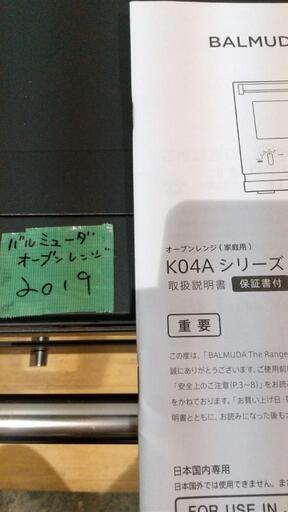 バルミューダ
オーブンレンジ
2019
BALMUDA
オーブンレンジ(家庭用)
K04A シリーズ
取扱説明書 保証書付
重要
この度は、「BALMUDA The Range
誠にありがとうございます。ご使用前
「安全上のご注意(P.3〜8)」をお読み
をかねております。「お買い上げ日・
明書とともに、お読みになった後も大
日本国内専用
日本国外では使用できません。また
FOR USE IN